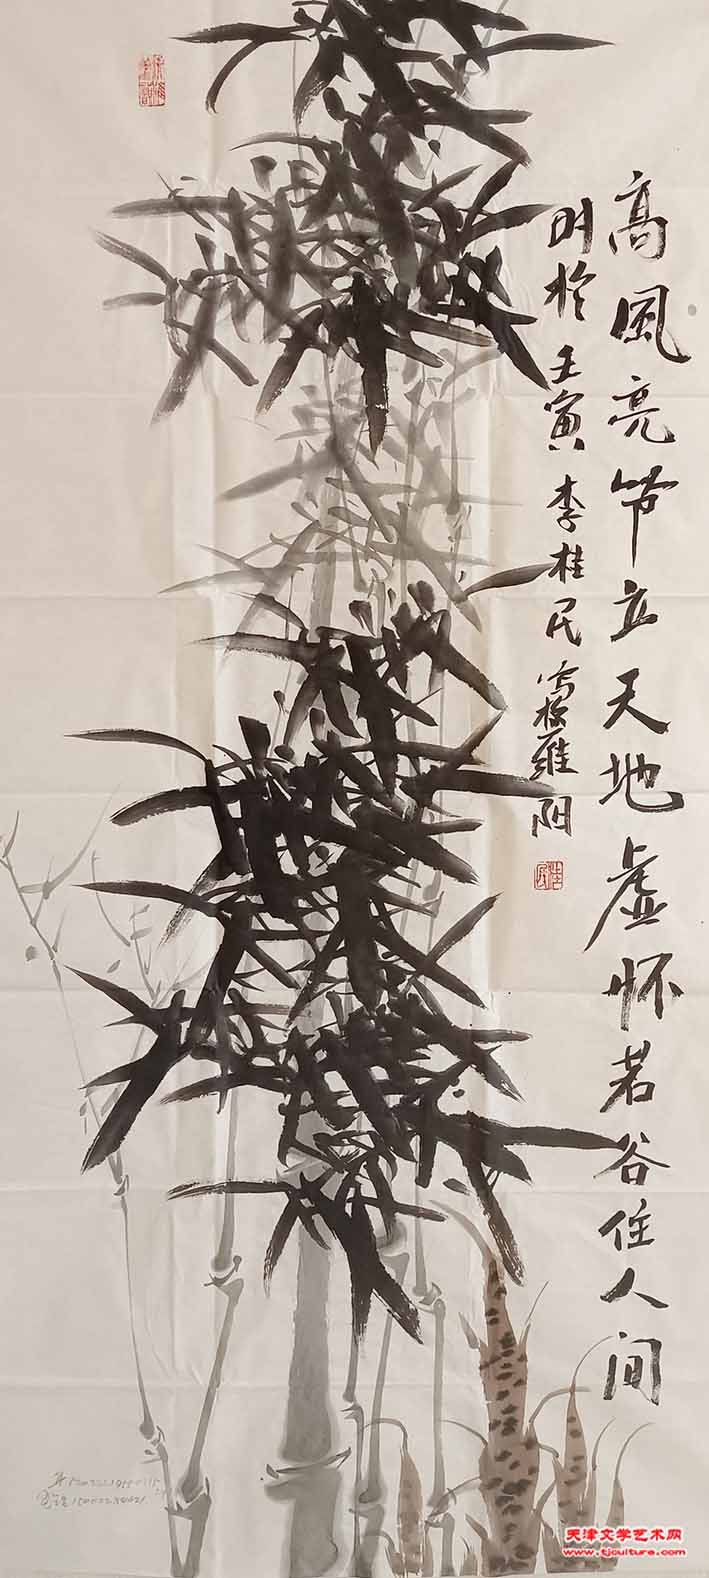 高風亮节立天地虚怀若谷住人间
时於壬寅李桂民写於雍阳
天津文学艺术网
www.tjculture.com